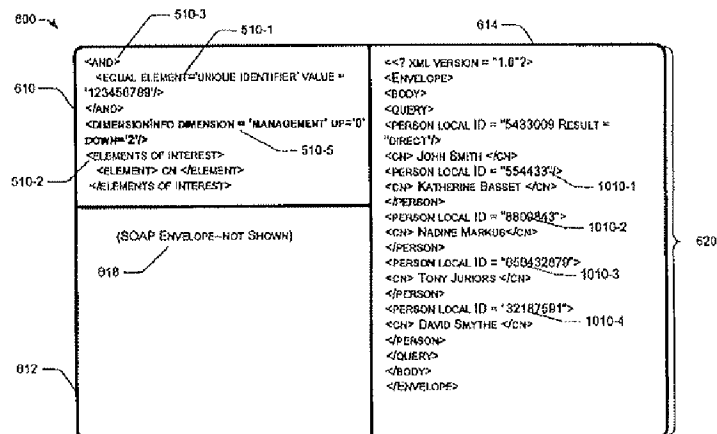 600
510-3
510-1
614
<AND>
<EQUAL ELEMENT='UNIQUE IDENTIFIER' VALUE =
'123456789'/>
</AND>
<DIMENSIONINFO DIMENSION = 'MANAGEMENT' UP='0'
DOWN='2'/>
<ELEMENTS OF INTEREST>
<ELEMENT> CN </ELEMENT>
</ELEMENTS OF INTEREST>
610
510-5
510-2
(SOAP ENVELOPE--NOT SHOWN)
618
612
<<? XML VERSION = "1.0"?>
<ENVELOPE>
<BODY>
<QUERY>
<PERSON LOCAL ID = "5433009 RESULT =
"DIRECT"/>
<CN> JOHN SMITH </CN>
<PERSON LOCAL ID = "554433"/>
<CN> KATHERINE BASSET </CN>
</PERSON>
<PERSON LOCAL ID = "8809843">
<CN> NADINE MARKUS</CN>
</PERSON>
<PERSON LOCAL ID =
<CN> TONY JUNIORS </CN>
</PERSON>
<PERSON LOCAL ID = "32187591">
<CN> DAVID SMYTHE </CN>
</PERSON>
</QUERY>
</BODY>
</ENVELOPE>
1010-1
1010-2
1010-3
1010-4
620